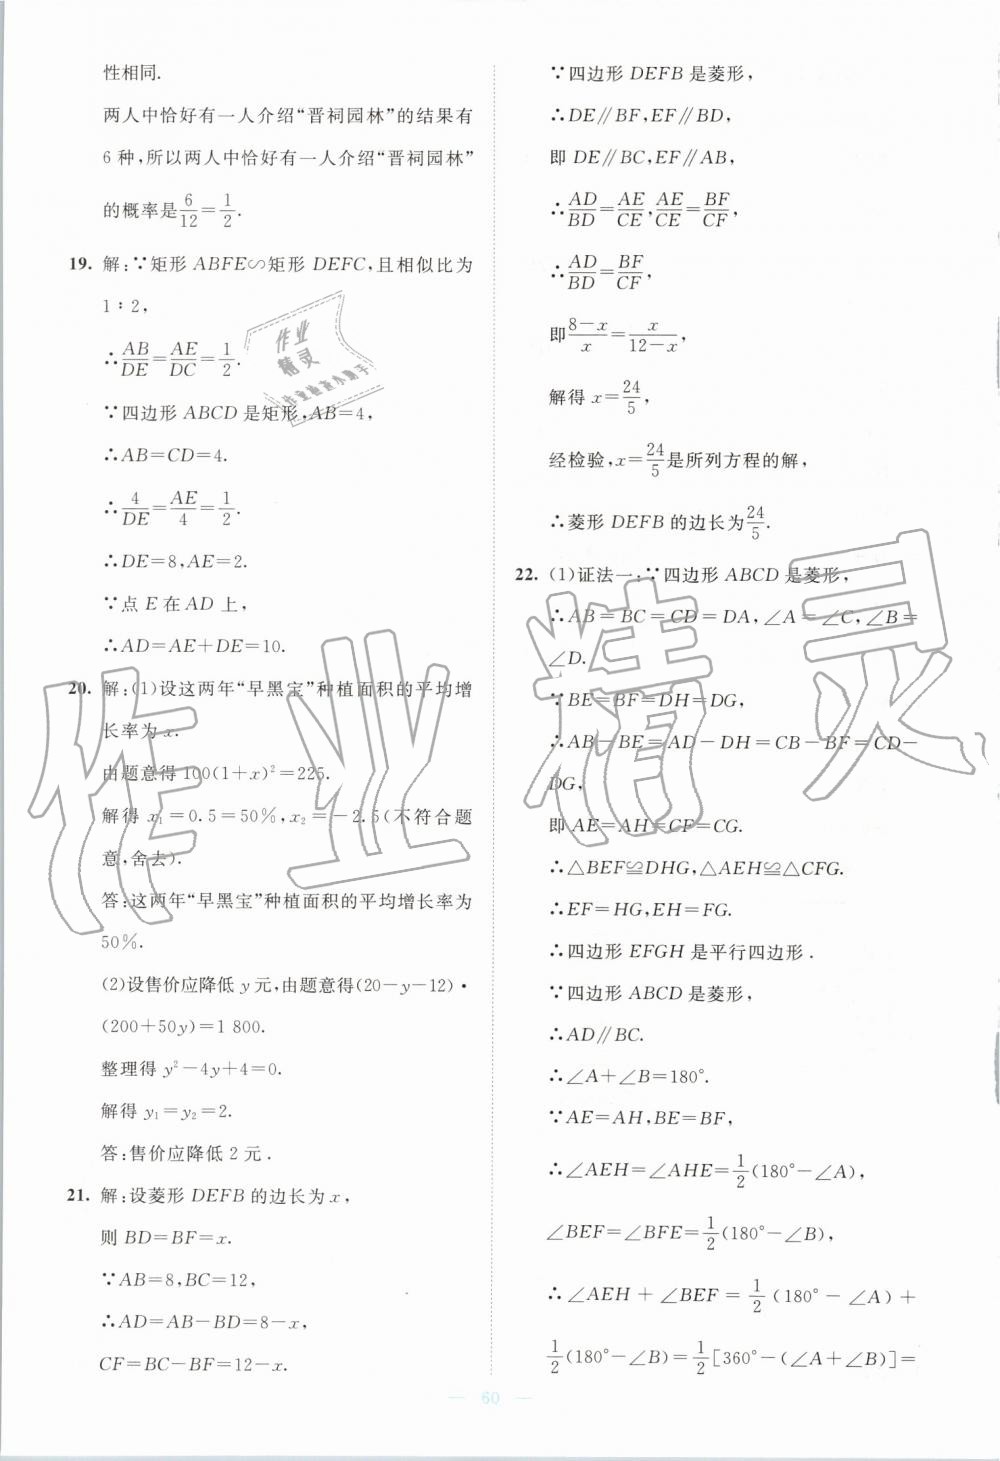 性相同.
两人中恰好有一人介绍“晋祠园林”的结果有
6种,所以两人中恰好有一人介绍“晋祠园林”
的概率是6/12=1/2.
19. 解:∵矩形 ABFE∽矩形 DEFC,且相似比为
1∶2,
∴AB/DE=AE/DC=1/2.
∵四边形 ABCD 是矩形,AB=4,
∴AB=CD=4.
∴4/DE=AE/4=1/2.
∴DE=8,AE=2.
∵点 E 在 AD 上,
∴AD=AE+DE=10.
20. 解:(1)设这两年“早黑宝”种植面积的平均增
长率为 x.
由题意得 100(1+x)²=225.
解得 x₁=0.5=50%,x₂=-2.5(不符合题
意,舍去).
答:这两年“早黑宝”种植面积的平均增长率为
50%.
(2)设售价应降低 y 元,由题意得(20-y-12)·
(200+50y)=1 800.
整理得 y²-4y+4=0.
解得 y₁=y₂=2.
答:售价应降低 2 元.
21. 解:设菱形 DEFB 的边长为 x,
则 BD=BF=x.
∵AB=8,BC=12,
∴AD=AB-BD=8-x,
CF=BC-BF=12-x.
∵四边形 DEFB 是菱形,
∴DE∥BF,EF∥BD,
即 DE∥BC,EF∥AB,
∴AD/BD=AE/CE,AE/CE=BF/CF,
∴AD/BD=BF/CF,
即(8-x)/x=x/(12-x),
解得 x=24/5,
经检验,x=24/5是所列方程的解,
∴菱形 DEFB 的边长为24/5.
22. (1)证法一:∵四边形 ABCD 是菱形,
∴AB=BC=CD=DA,∠A=∠C,∠B=
∠D.
∵BE=BF=DH=DG,
∴AB-BE=AD-DH=CB-BF=CD-
DG,
即 AE=AH=CF=CG.
∴△BEF≌DHG,△AEH≌△CFG.
∴EF=HG,EH=FG.
∴四边形 EFGH 是平行四边形.
∵四边形 ABCD 是菱形,
∴AD∥BC.
∴∠A+∠B=180°.
∵AE=AH,BE=BF,
∴∠AEH=∠AHE=1/2(180°-∠A),
∠BEF=∠BFE=1/2(180°-∠B),
∴∠AEH+∠BEF=1/2(180°-∠A)+
1/2(180°-∠B)=1/2[360°-(∠A+∠B)]=
— 60 —
作业精灵
作业
精灵